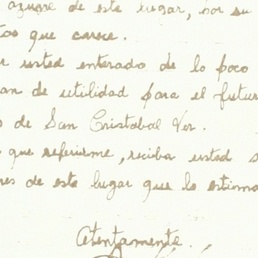 azucar de este lugar, por su
tos que carece.
r usted enterado de lo poco
an de utilidad para el futur
o de San Cristobal Ver.
o que referirme, reciba usted s
res de este lugar que lo estima
Atentamente.